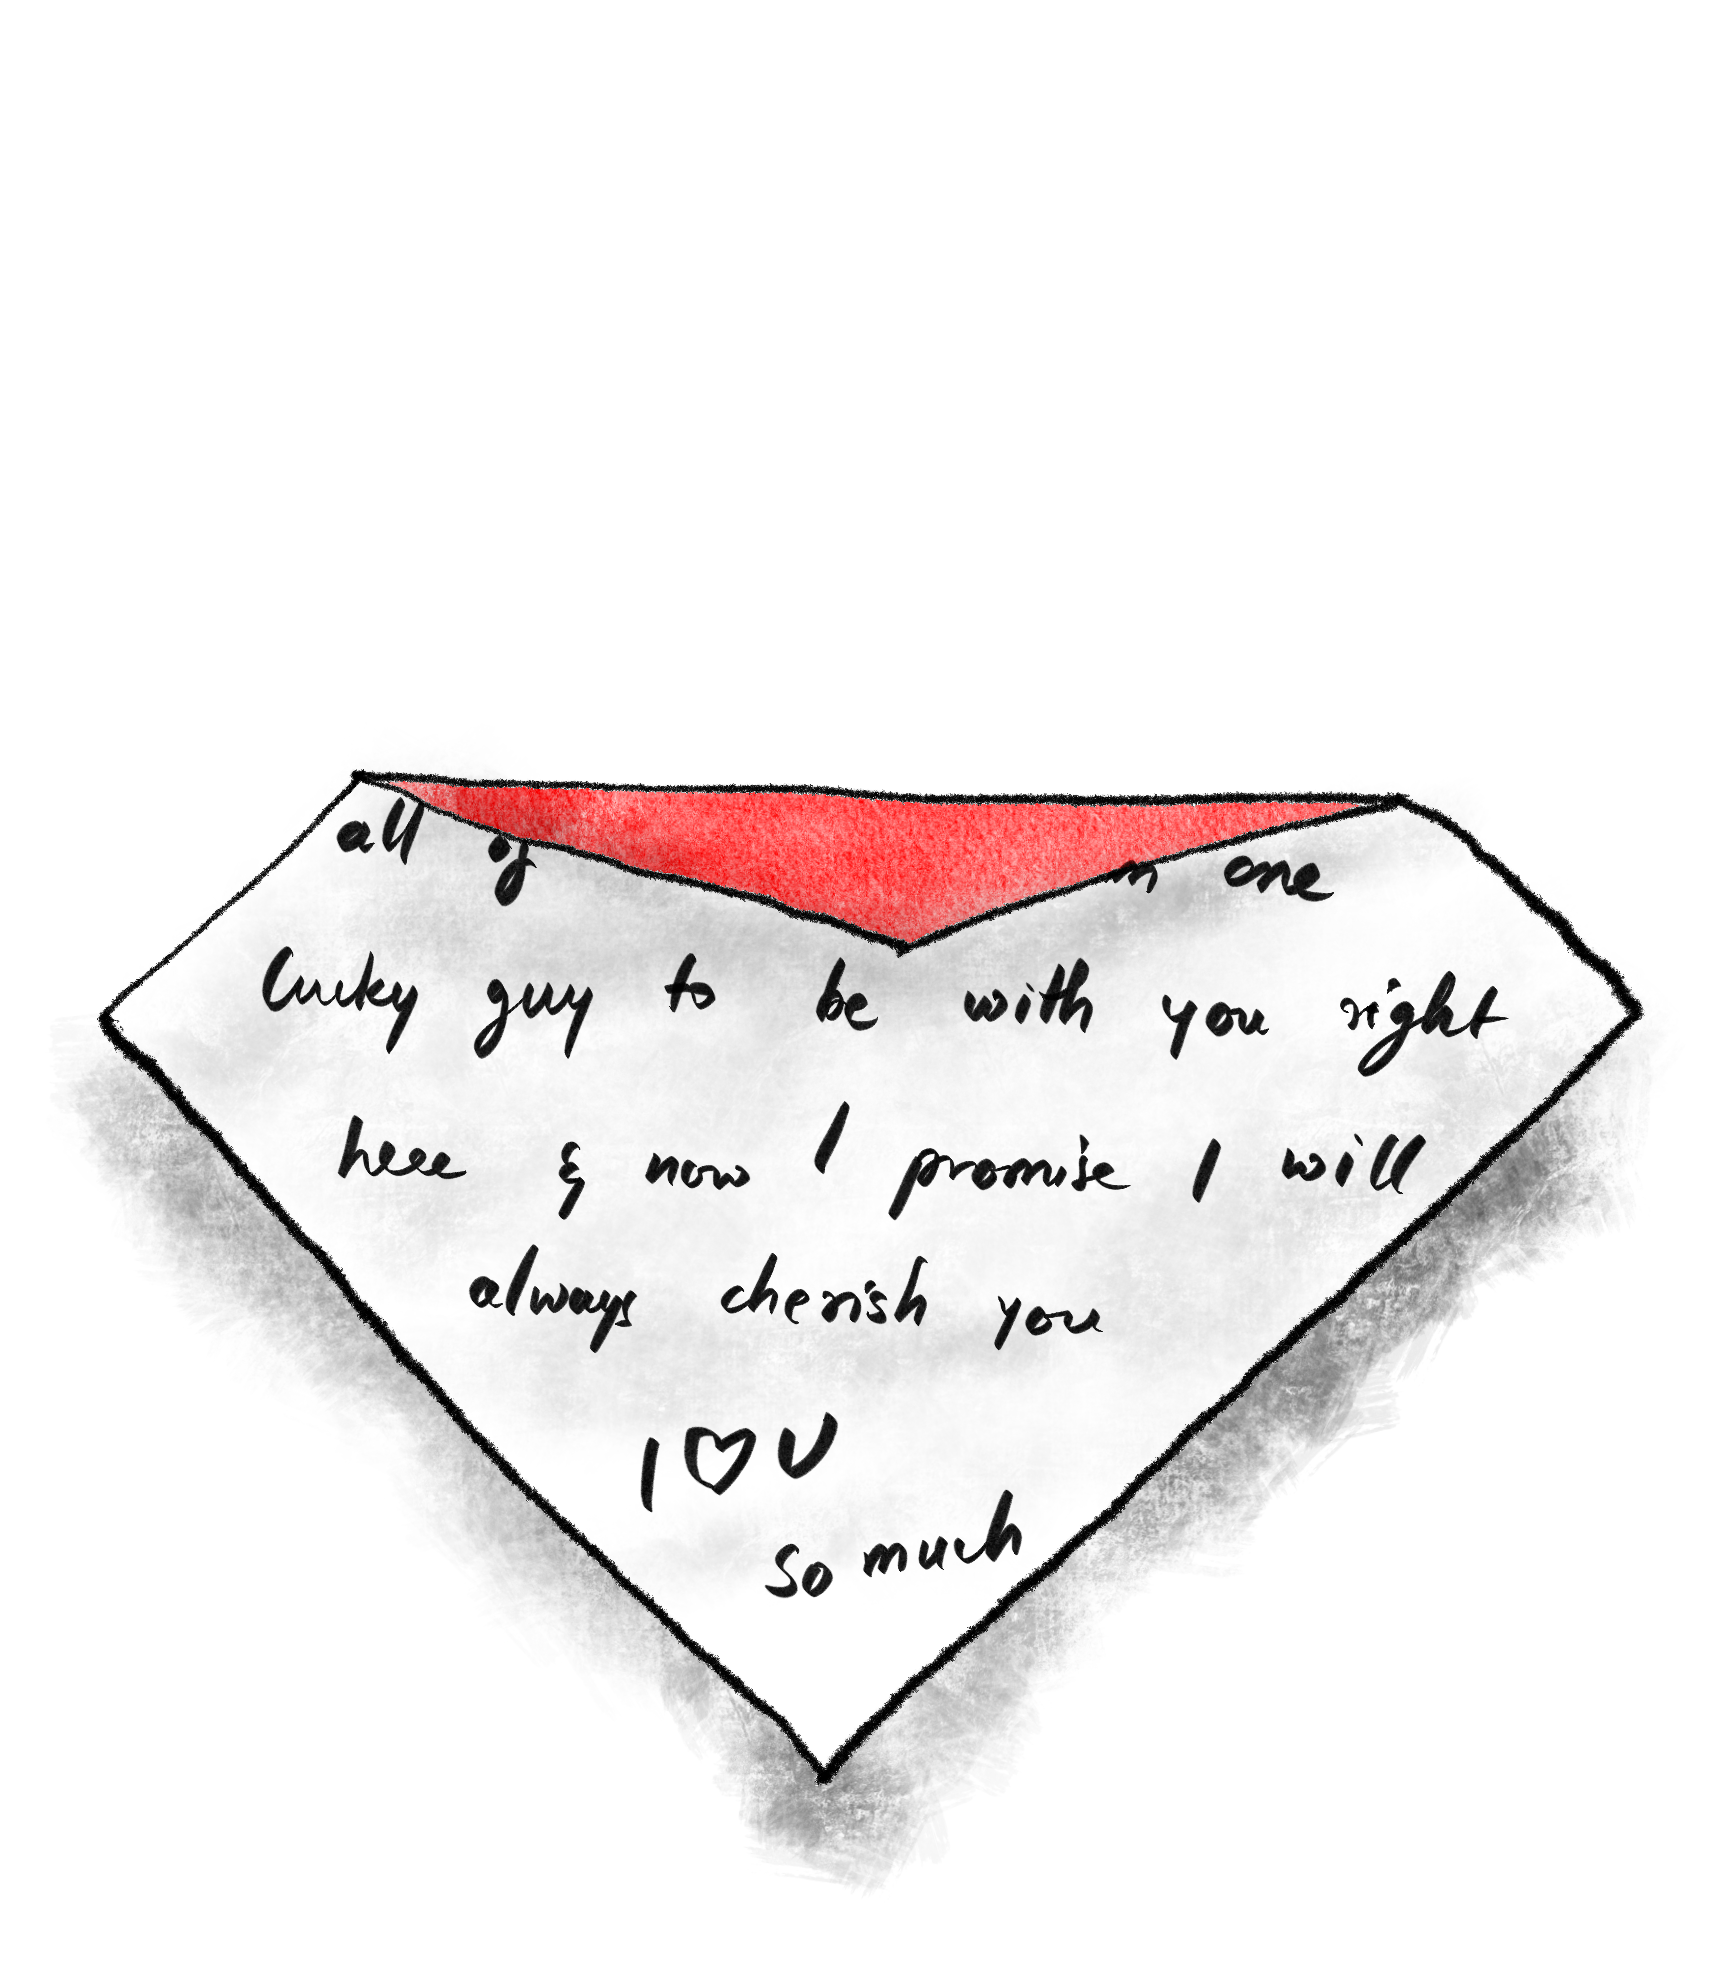 all of one
lucky guy to be with you right
here & now I promise I will
always cherish you
I ♡ U
so much